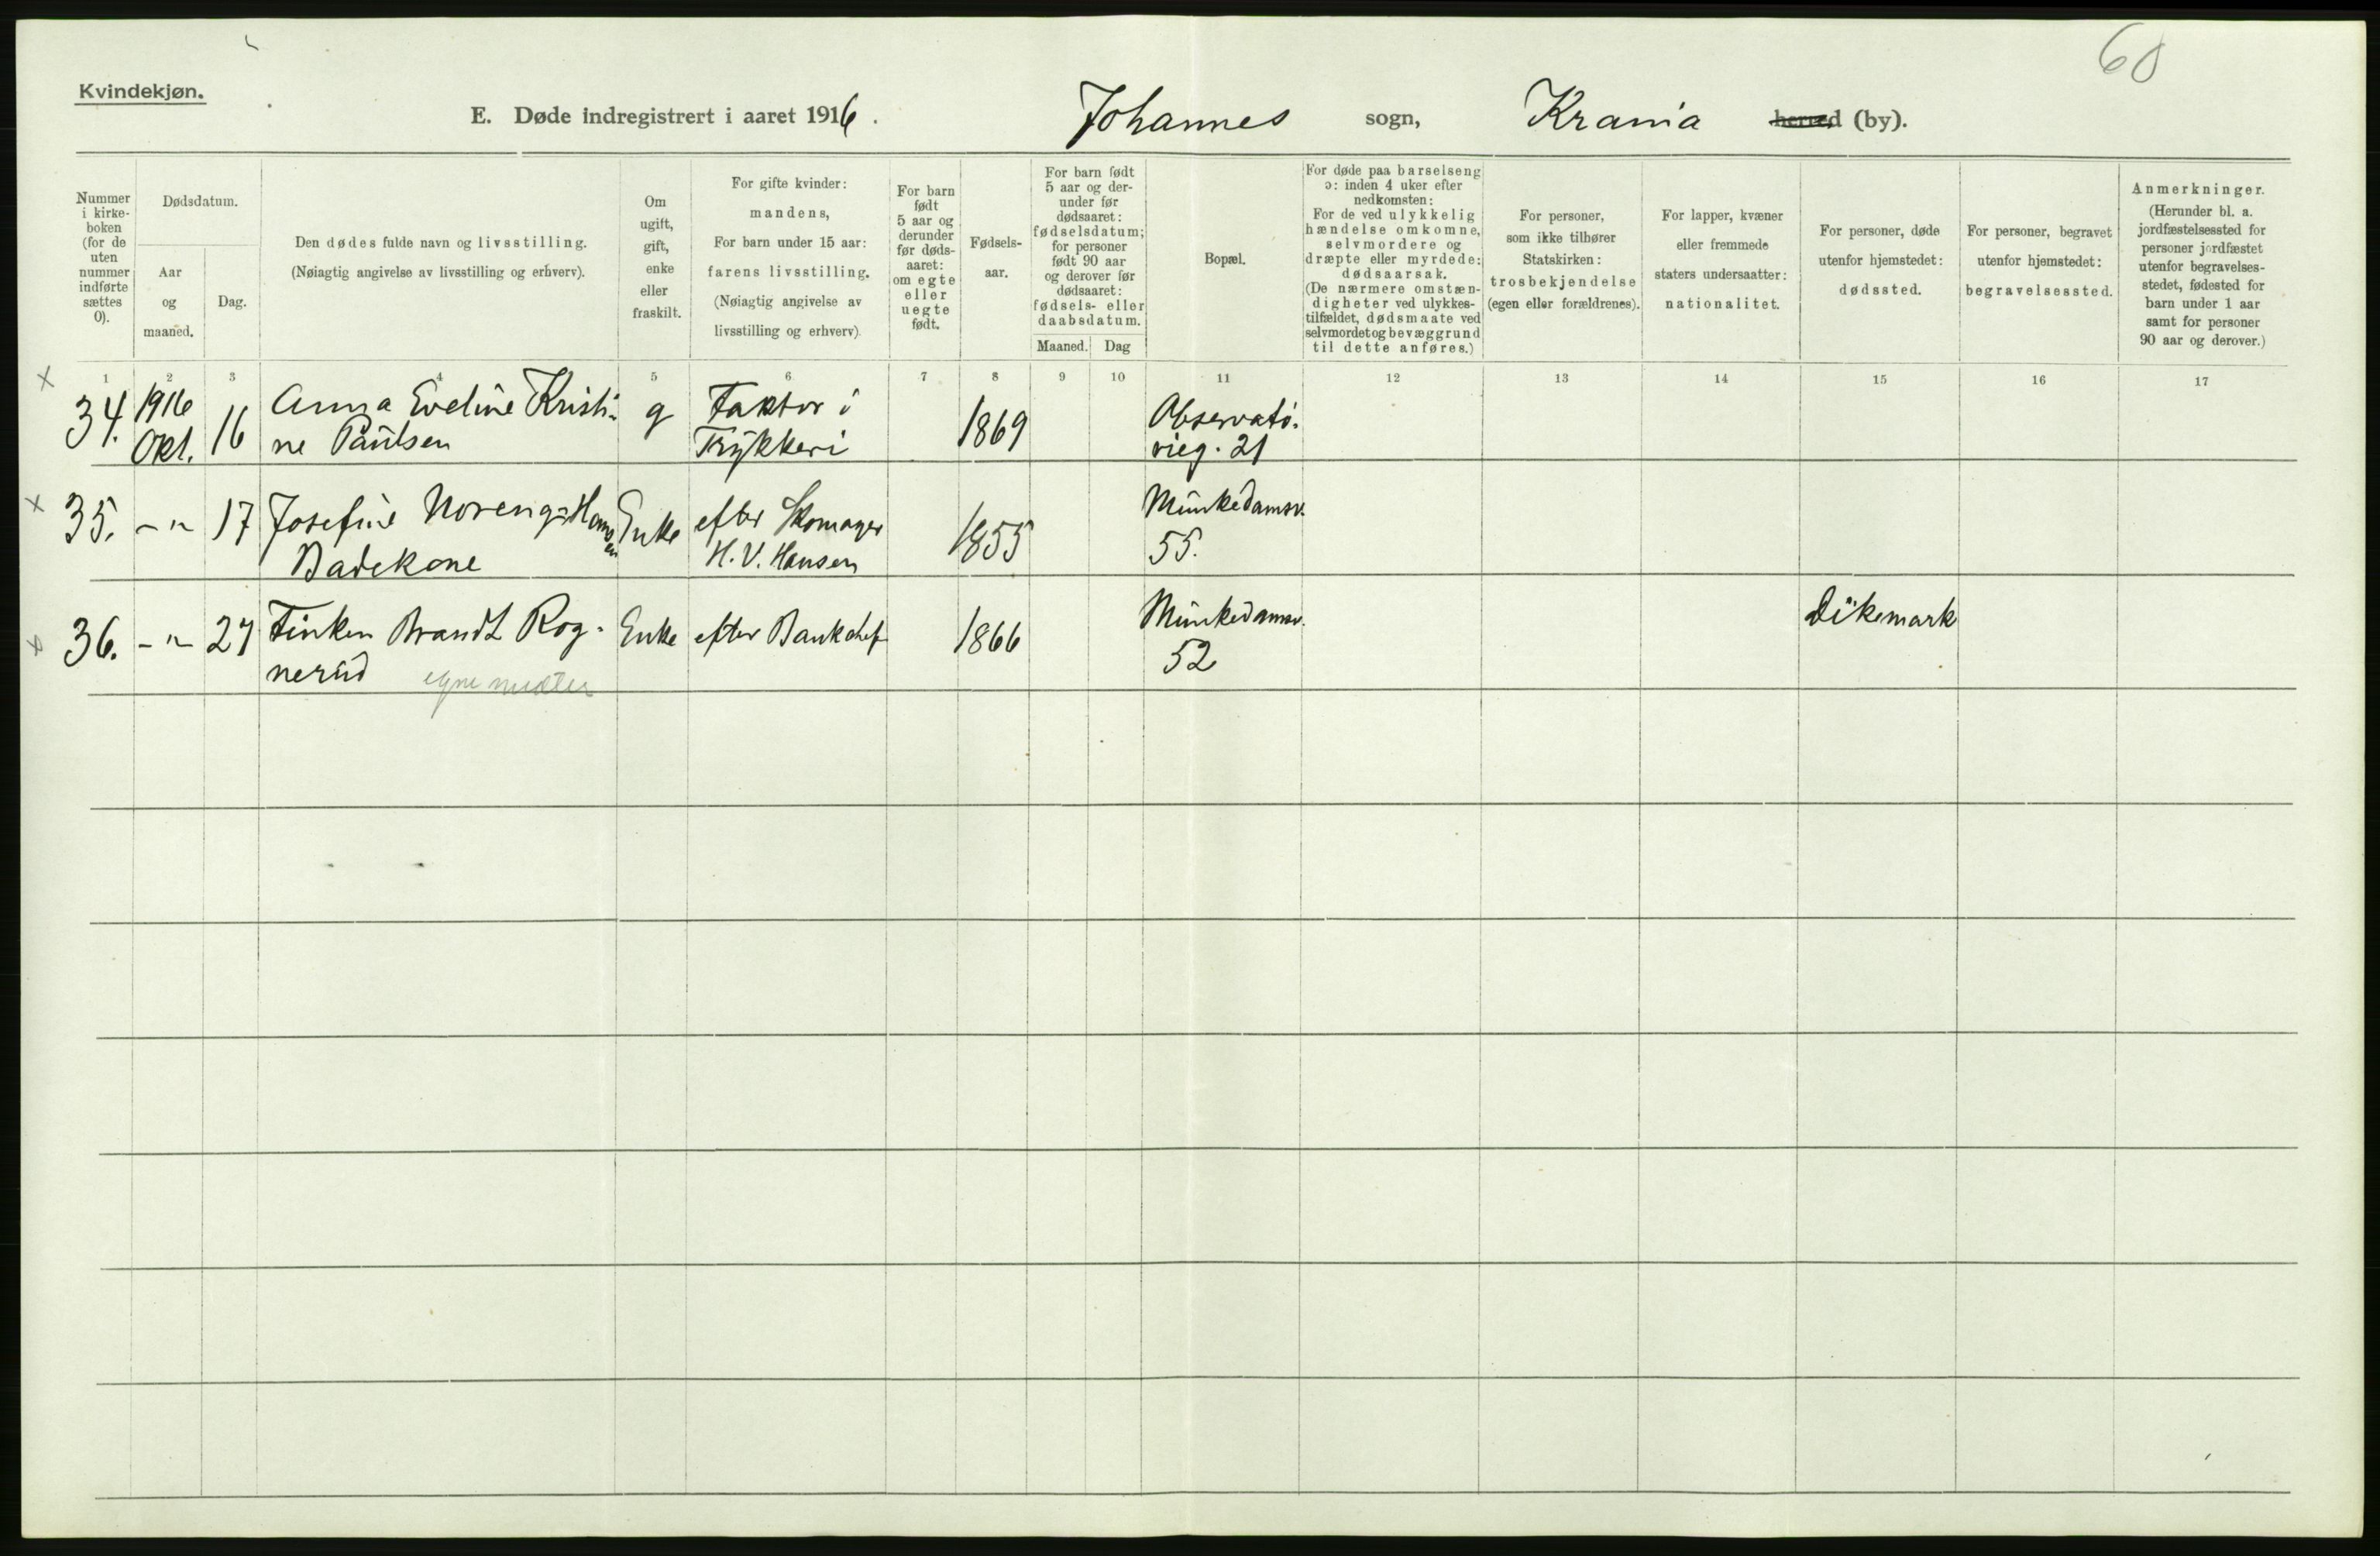 60
Kvindekjøn.
E. Døde indregistrert i aaret 1916. Johannes sogn, Krania herred (by).
Nummer i kirke-boken (for de uten nummer indførte sættes 0).
Dødsdatum.
Aar og maaned.
Dag.
Den dødes fulde navn og livsstilling.
(Nøiagtig angivelse av livsstilling og erhverv).
Om ugift, gift, enke eller fraskilt.
For gifte kvinder: mandens,
For barn under 15 aar: farens livsstilling.
(Nøiagtig angivelse av livsstilling og erhverv).
For barn født 5 aar og derunder før døds-aaret: om egte eller uegte født.
Fødsels-aar.
For barn født 5 aar og der-under før dødsaaret: fødselsdatum; for personer født 90 aar og derover før dødsaaret: fødsels- eller daabsdatum.
Maaned. Dag
Bopæl.
For døde paa barselseng ɔ: inden 4 uker efter nedkomsten: For de ved ulykkelig hændelse omkomne, selvmordere og dræpte eller myrdede: dødsaarsak. (De nærmere omstæn-digheter ved ulykkes-tilfældet, dødsmaate ved selvmordet og bevæggrund til dette anføres.)
For personer, som ikke tilhører Statskirken: trosbekjendelse (egen eller forældrenes).
For lapper, kvæner eller fremmede staters undersaatter: nationalitet.
For personer, døde utenfor hjemstedet: dødssted.
For personer, begravet utenfor hjemstedet: begravelsessted.
Anmerkninger.
(Herunder bl. a. jordfæstelsessted for personer jordfæstet utenfor begravelses-stedet, fødested for barn under 1 aar samt for personer 90 aar og derover.)
1 2 3 4 5 6 7 8 9 10 11 12 13 14 15 16 17
34. 1916 Okt. 16 Anna Eveline Kristi-
ne Paulsen g Faktor i
Trykkeri 1869 Observato-
rieg. 21
35. -"- 17 Josefine Noreng=Hansen
Badekone Enke efter Skomager
H. V. Hansen 1855 Munkedamsv.
55.
36. -"- 27 Finken Brandt Rog-
nerud Enke efter Bankchef 1866 Munkedamsv.
52 Dikemark
egne midler